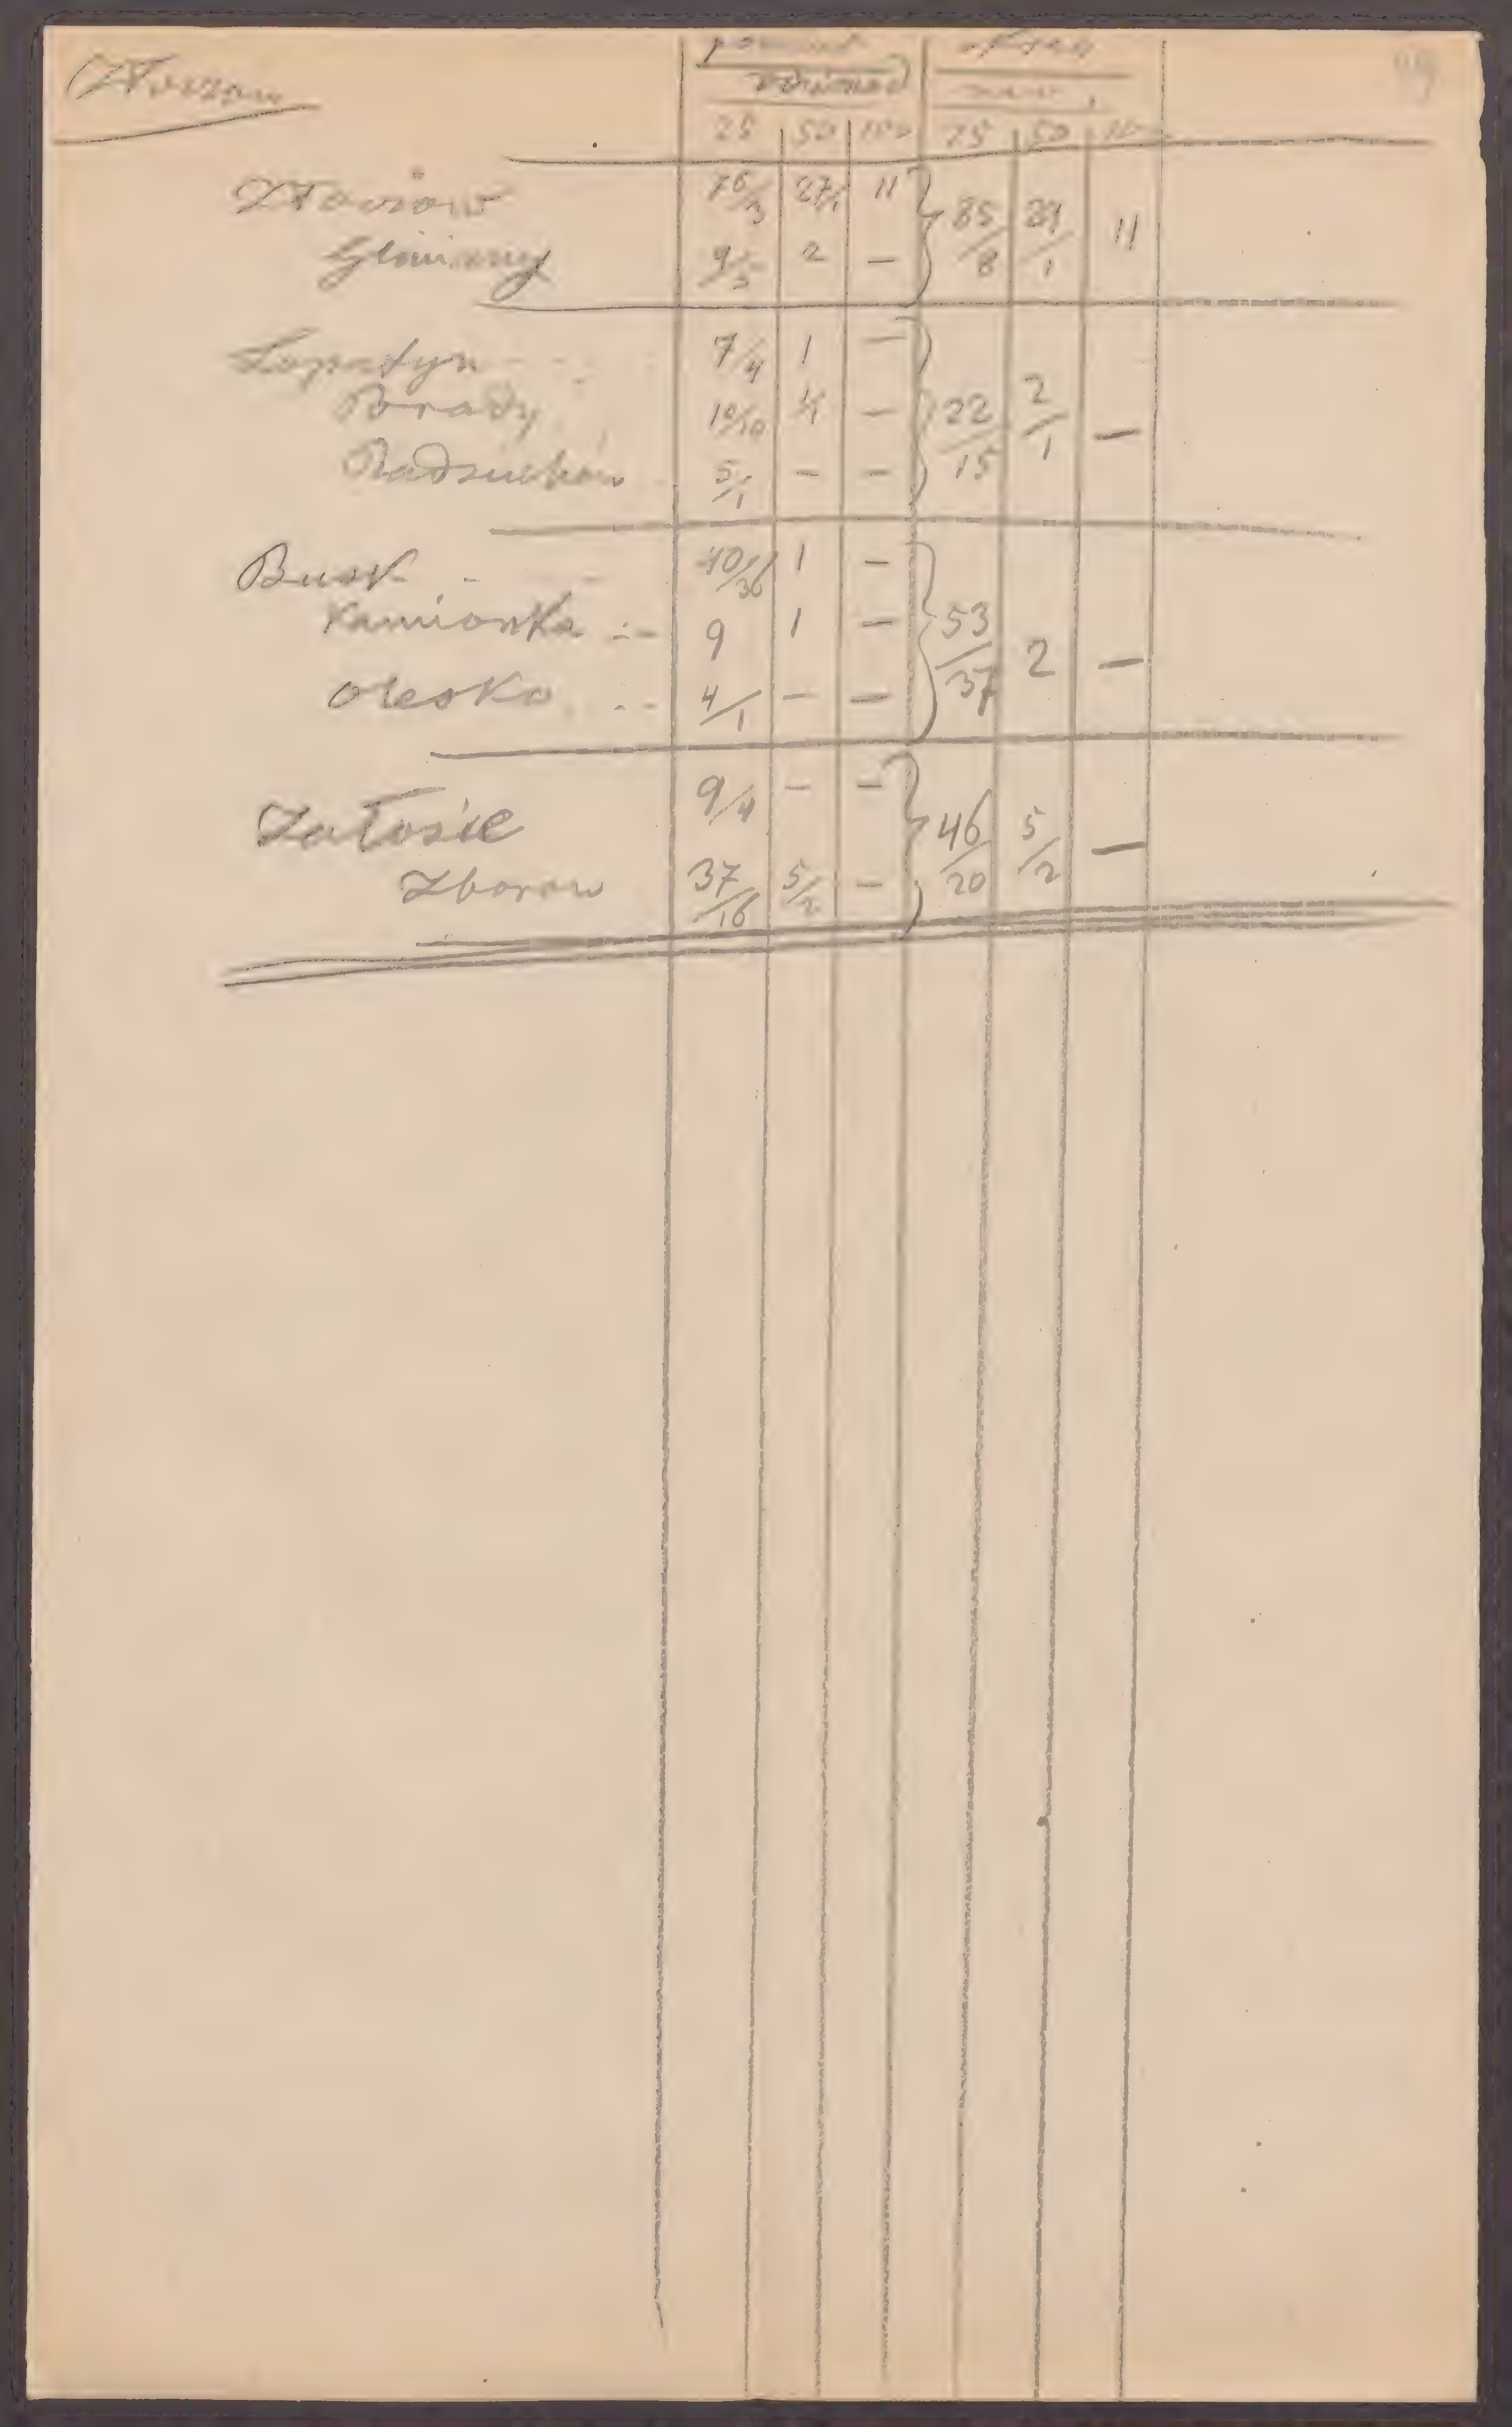 Złoczow
25 50 100 25 50 100
Złoczow 76/3 27/1 11 85/8 29/1 11
Gliniany 9/5 2 —
Łopatyn - - 7/4 1 — 22/15 2/1 —
Brody 10/10 1/1 —
Radziechów 5/1 — —
Busk - - 40/36 1 — 53/37 2 —
Kamionka 9 1 —
Olesko 4/1 — —
Załośce 9/4 — — 46/20 5/2 —
Zborow 37/16 5/2 —